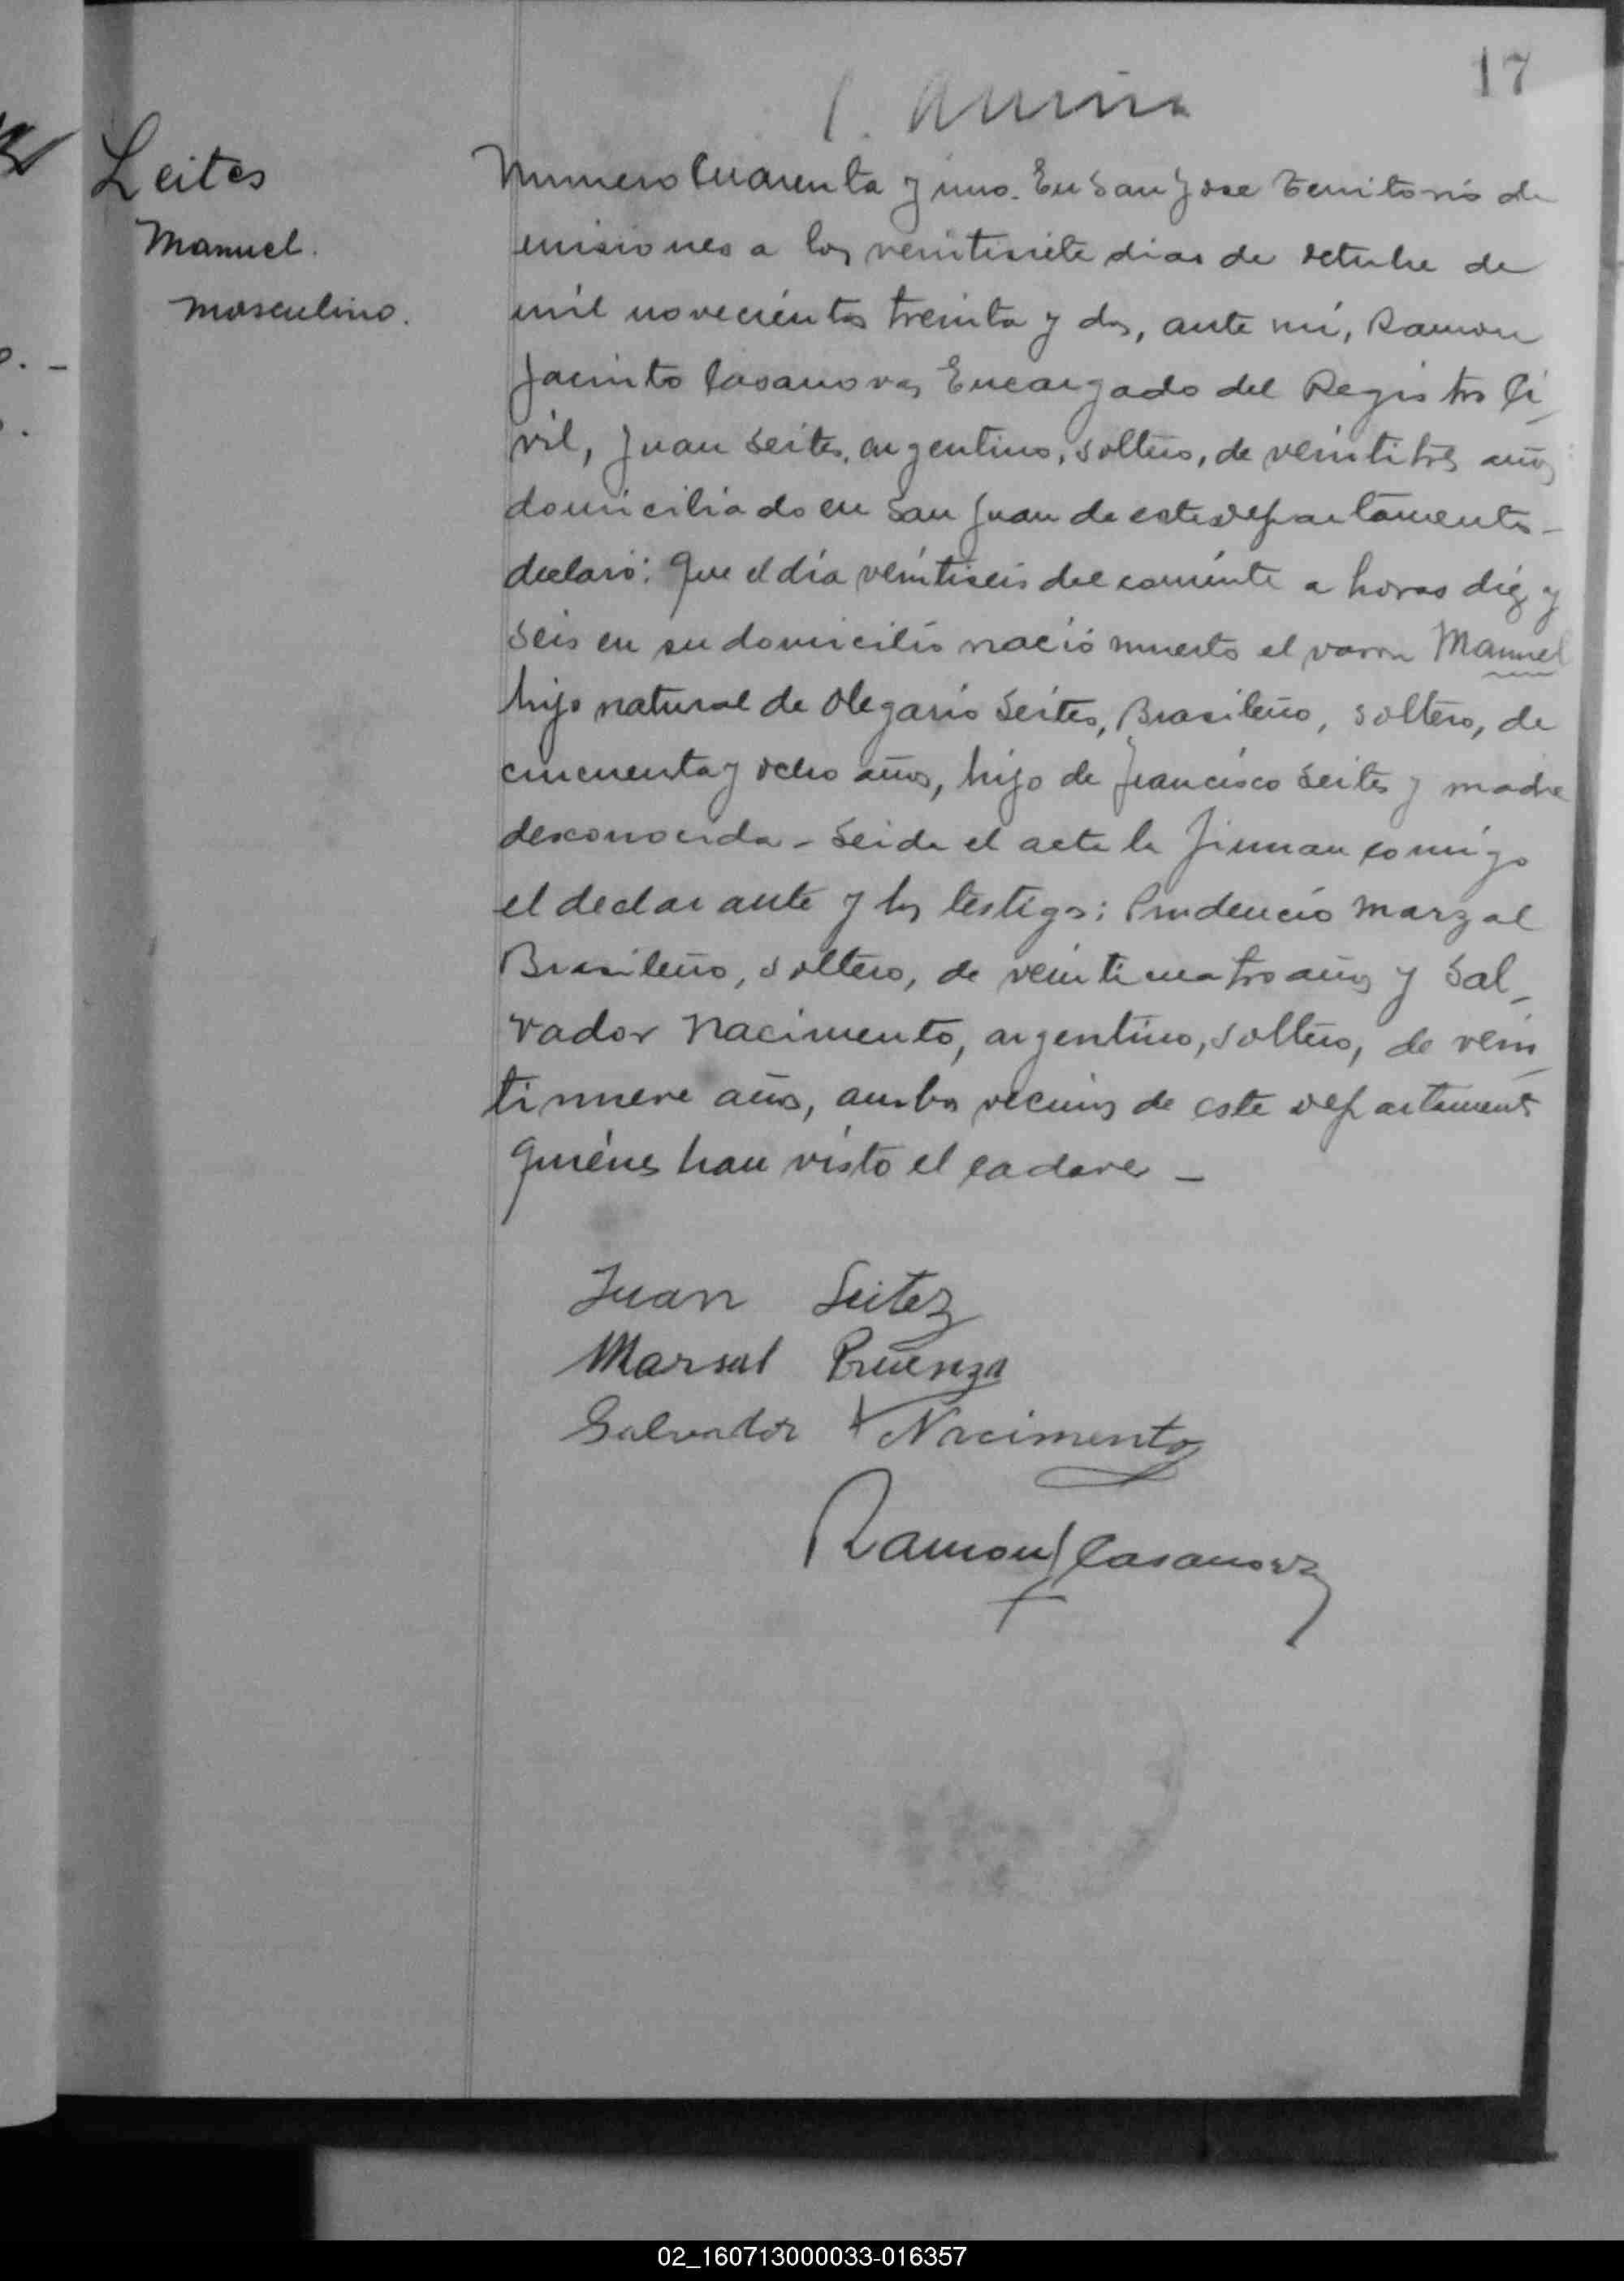 17
Leites
Manuel.
Masculino.
Numero Cuarenta y uno. En San Jose Territorio de
misiones a los veintisiete dias de octubre de
mil novecientos treinta y dos, ante mi, Ramon
Jacinto Casanova, Encargado del Registro Ci_
vil, Juan Leites, argentino, soltero, de veintitres años
domiciliado en San Juan de este departamento -
declaró: Que el día veintiseis del corriente a horas diez y
seis en su domicilio nació muerto el varon Manuel
hijo natural de Olegario Leites, Brasileño, soltero, de
cincuenta y ocho años, hijo de Francisco Leites y madre
desconocida - Leida el acta la firman comigo
el declarante y los testigos: Prudencio Marzal
Brasileño, soltero, de veinticuatro años y Sal_
vador Nacimento, argentino, soltero, de vein_
tinueve años, ambos vecinos de este departamento
quiénes han visto el cadaver -
Juan Leitez
Marsal
Salvador Nacimento
Ramon J Casanova
02_160713000033-016357